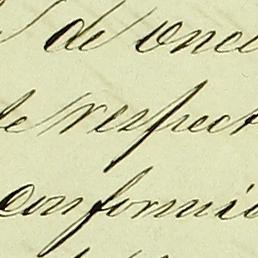 de once
le respect
conformid